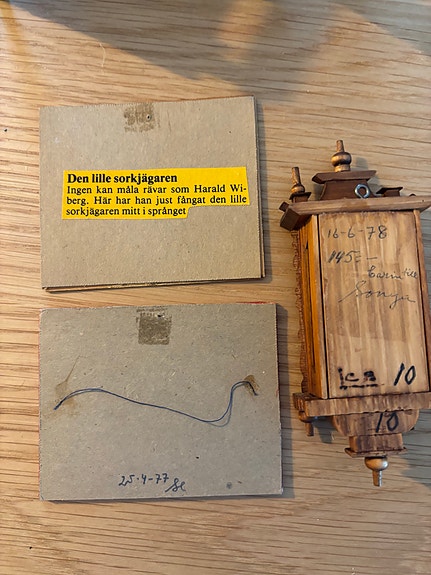 Den lille sorkjägaren
Ingen kan måla rävar som Harald Wi-
berg. Här har han just fångat den lille
sorkjägaren mitt i språnget
16-6-78
145:-
Sonja
ICB 10
18
25-4-77